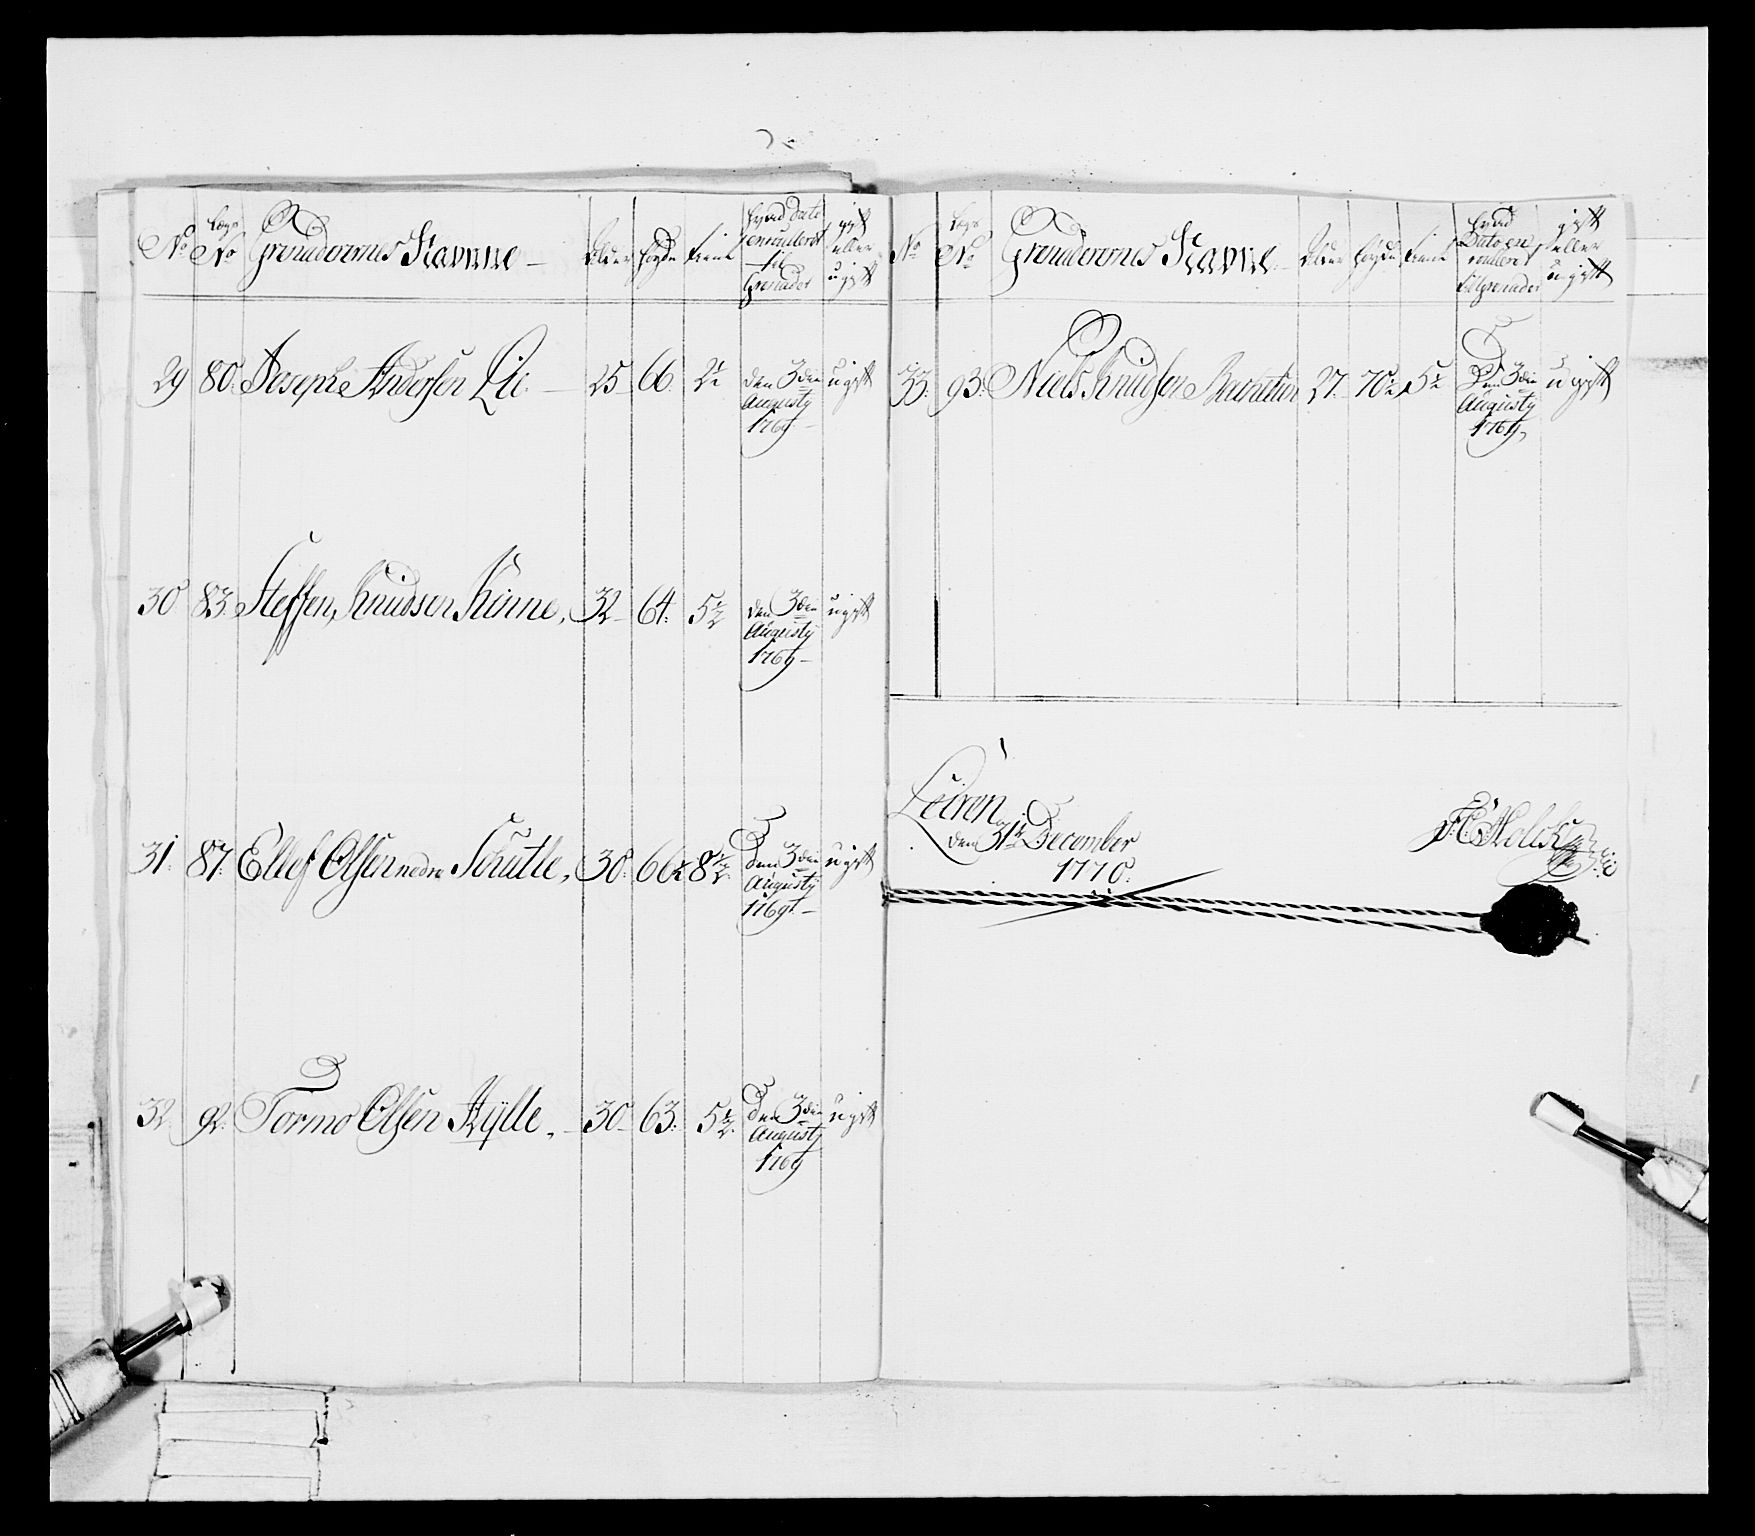 No Lægs No Grenderernes Navne Alder høyde tient hvad dato enroulleret til Grenader gift eller ugift
29 80. Joseph Andersen Lie 25 66. 2½ den 3den Augusty 1769 ugift
30 83 Steffen Knudsen Rinne, 32 64. 5½ den 3den Augusty 1769 ugift
31. 87. Ellef Olsen nedre Schutle, 30. 66½ 8½ den 3den Augusty 1769 ugift
32 92. Tormo Olsen Kylle, 30 63. 5½ den 3den Augusty 1769 ugift
No Lægs No Grenderernes Navne Alder høyde tient hvad Dato en roulleret til Grenader gift eller ugift
33. 93. Niels Knudsen 27. 70½ 5½ Den 3den Augusty 1769 ugift
Leiren
den 31te December
1770.
Holck